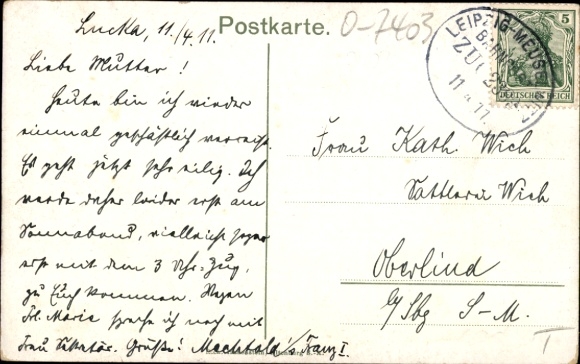 Postkarte.
O-7403
Lucka, 11./4.11.
Liebe Mutter!
Heute bin ich wieder
einmal geschäftlich verreist.
Es geht jetzt sehr eilig. Ich
werde daher leider erst am
Sonnabend, vielleicht sogar
erst mit dem 3 Uhr-Zug,
zu Euch kommen. Wegen
Frl. Marie spreche ich noch mit
Frau Sekretär. Grüße!
LEIPZIG-MEUSE
BAHN
ZUG
11
5
DEUTSCHES REICH
Frau Kath. Wich
Sattlerei Wich
Oberlind
b/Sbg S-M.
T